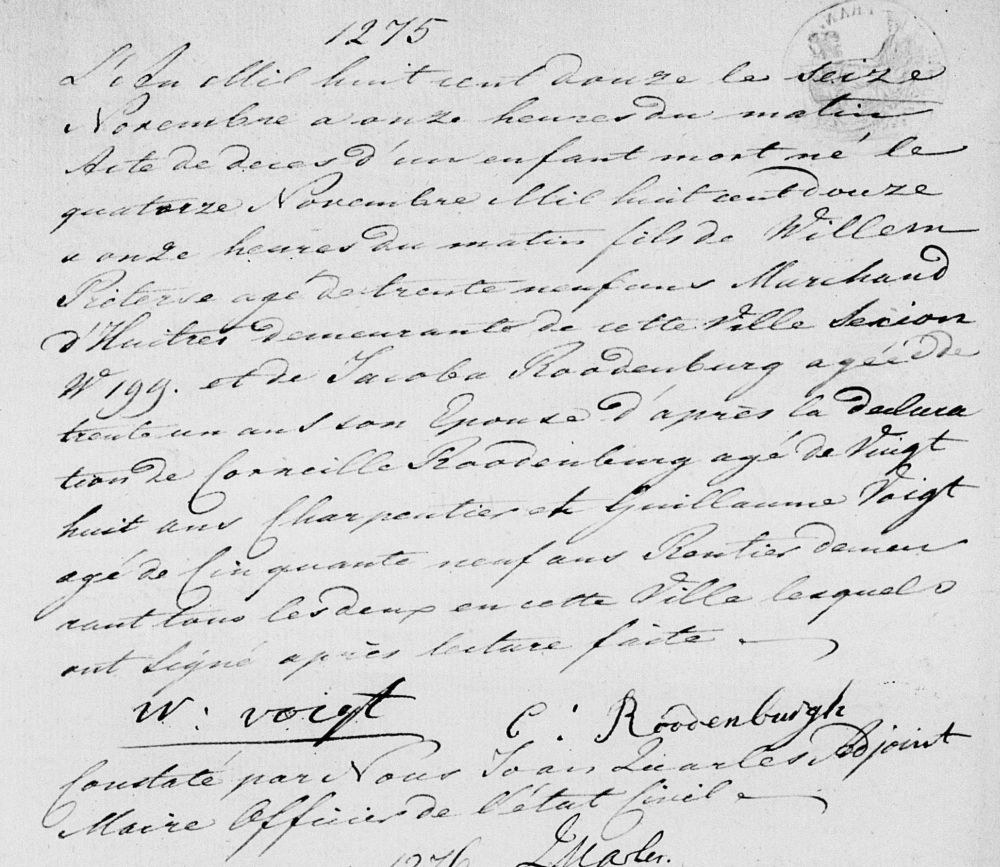 1275
L'An Mil huit cent douze le seize
Novembre a onze heures du matin
Acte de deces d'un enfant mort né le
quatorze Novembre Mil huit cent douze
a onze heures du matin fils de Willem
Pieterse agé de trente neuf ans Marchand
d'Huitres demeurants de cette Ville Sexion
W 199. et de Jacoba Roodenburg agéé de
trente un ans son Epouse d'après la declara
tion de Corneille Roodenburg agé de Vingt
huit ans Charpentier et Guillaume Voigt
agé de Cinquante neuf ans Rentier demeu
rant tous les deux en cette Ville lesquels
ont Signé après lecture faite
W: Voigt
C: Roodenburgh
Constaté par Nous Joan Quarles Adjoint
Maire Officier de l'état Civil
1276